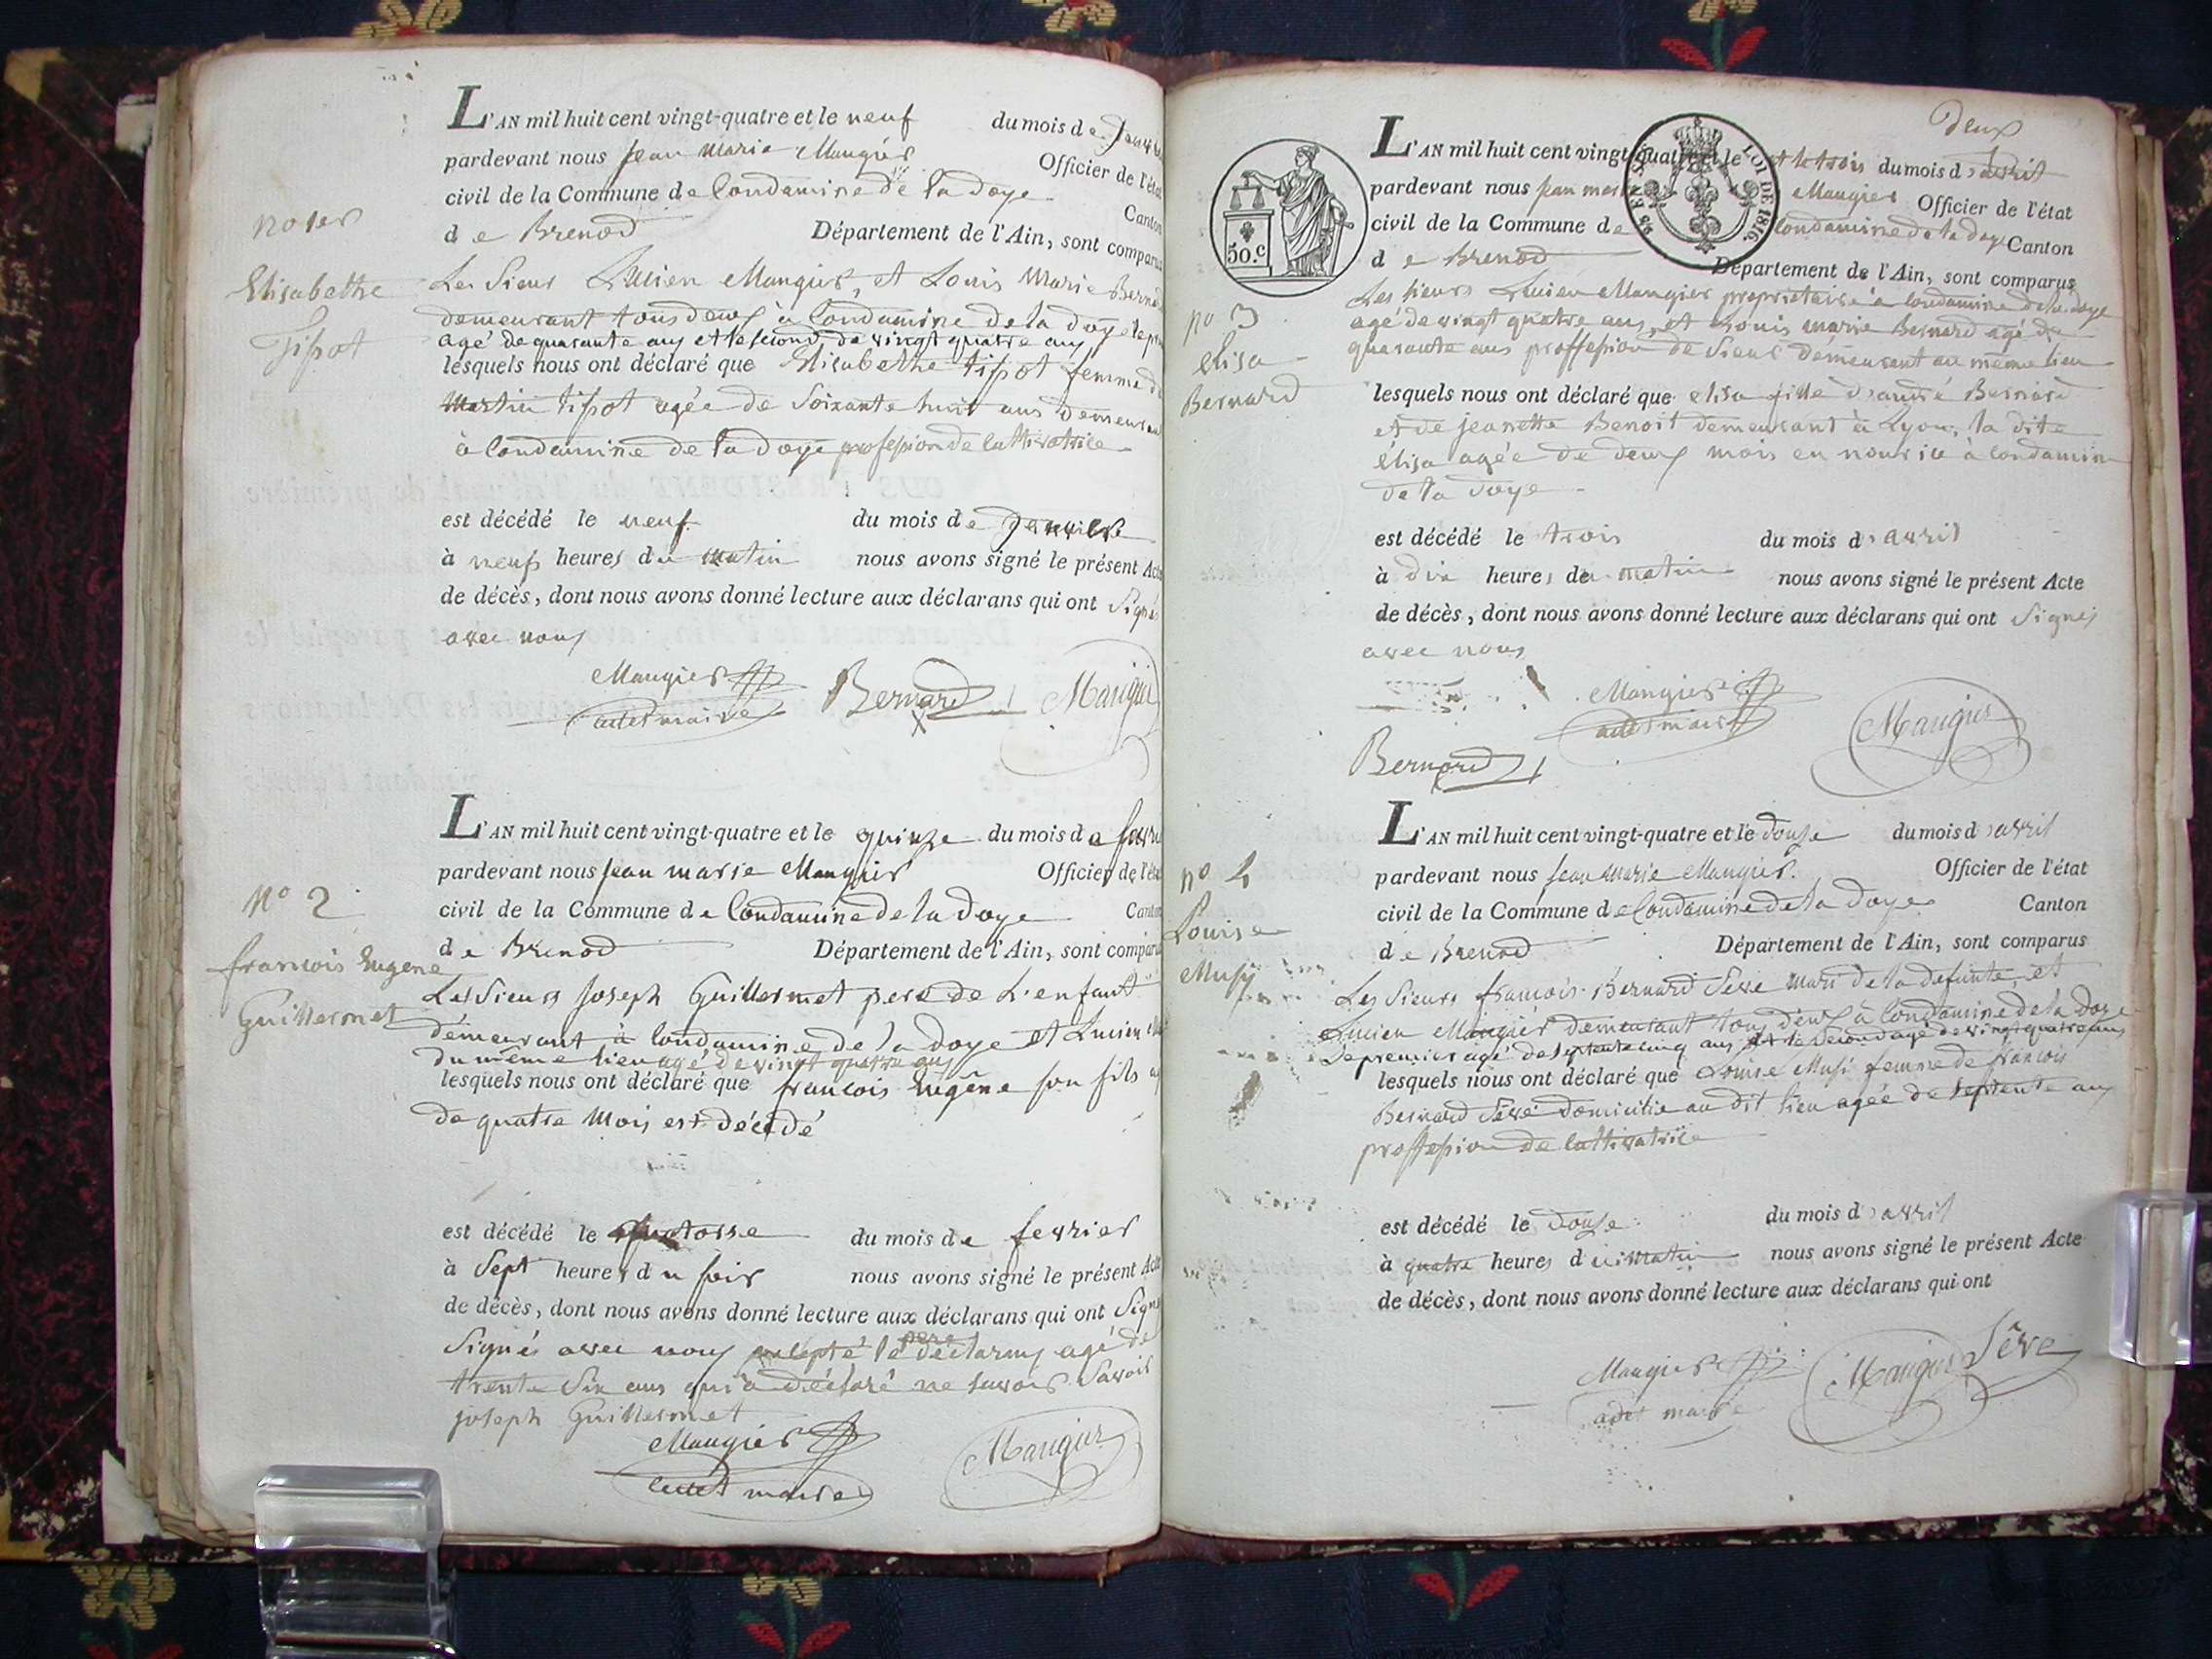 no 1er
Elisabethe
Tissot
L'AN mil huit cent vingt-quatre et le neuf du mois de Janvier
pardevant nous Jean Marie Maugier Officier de l'état
civil de la Commune de Condamine de la doye Canton
de Brenod Département de l'Ain, sont comparus
Les Sieur Lucien Maugier, et Louis Marie Bernard
demeurant tous deux à Condamine de la doye
agé de quarante ans et le second de vingt quatre ans
lesquels nous ont déclaré que Elisabethe tissot femme de
Martin tissot agée de Soixante huit ans demeurant
à Condamine de la doye profession de Cultivatrice
est décédé le neuf du mois de Janvier
à neufs heures du matin nous avons signé le présent Acte
de décès, dont nous avons donné lecture aux déclarans qui ont Signés
avec nous
Maugier Bernard Maugier
maire
No 2
francois Eugene
Guillermet
L'AN mil huit cent vingt-quatre et le quinze du mois de fevrier
pardevant nous Jean marie Maugier Officier de l'état
civil de la Commune de Condamine de la Doye Canton
de Brenod Département de l'Ain, sont comparus
Les Sieurs Joseph Guillermet pere de L'enfant
demeurant à Condamine de la Doye et Lucien
du même lieu agé de vingt quatre ans
lesquels nous ont déclaré que francois Eugêne son fils
de quatre Mois est décédé
est décédé le quatorse du mois de fevrier
à Sept heures du soir nous avons signé le présent Acte
de décès, dont nous avons donné lecture aux déclarans qui ont
Signés avec nous le pere declarans agé de
trente Six ans qui a déclaré ne savoir
joseph Guillermet
Maugier Maugier
maire
deux
50.C
LOI DE 1816.
no 3
elisa
Bernard
L'AN mil huit cent vingt-quatre et le et le trois du mois d'avril
pardevant nous jean marie Maugier Officier de l'état
civil de la Commune de Condamine de la doye Canton
de Brenod Département de l'Ain, sont comparus
Les sieurs Lucien Maugier proprietaire à Condamine de la doye
agé de vingt quatre ans, et Louis marie Bernard agé de
quarante ans proffession de Sieur demeurant au même lieu
lesquels nous ont déclaré que elisa fille d'andré Bernard
et de jeanette Benoit demeurant à Lyon, la dite
élisa agée de deux mois en nourice à Condamine
de la doye
est décédé le trois du mois d'avril
à dix heures du matin nous avons signé le présent Acte
de décès, dont nous avons donné lecture aux déclarans qui ont Signés
avec nous
Maugier Maugier
maire
Bernard
no 4
Louise
Musy
L'AN mil huit cent vingt-quatre et le douse du mois d'avril
pardevant nous Jean Marie Maugier. Officier de l'état
civil de la Commune de Condamine de la doye Canton
de Brenod Département de l'Ain, sont comparus
Les Sieurs francois Bernard Seve mari de la defunte, et
Lucien Maugier demeurant tous deux à Condamine de la Doye
Le premier agé de septente cinq ans et le second agé de vingt quatre ans
lesquels nous ont déclaré que Louise Musi femme de francois
Bernard Seve domicilie au dit lieu agée de septente ans
proffession de Cultivatrice
est décédé le douse du mois d'avril
à quatre heures du matin nous avons signé le présent Acte
de décès, dont nous avons donné lecture aux déclarans qui ont
Maugier Maugier Sêve
maire